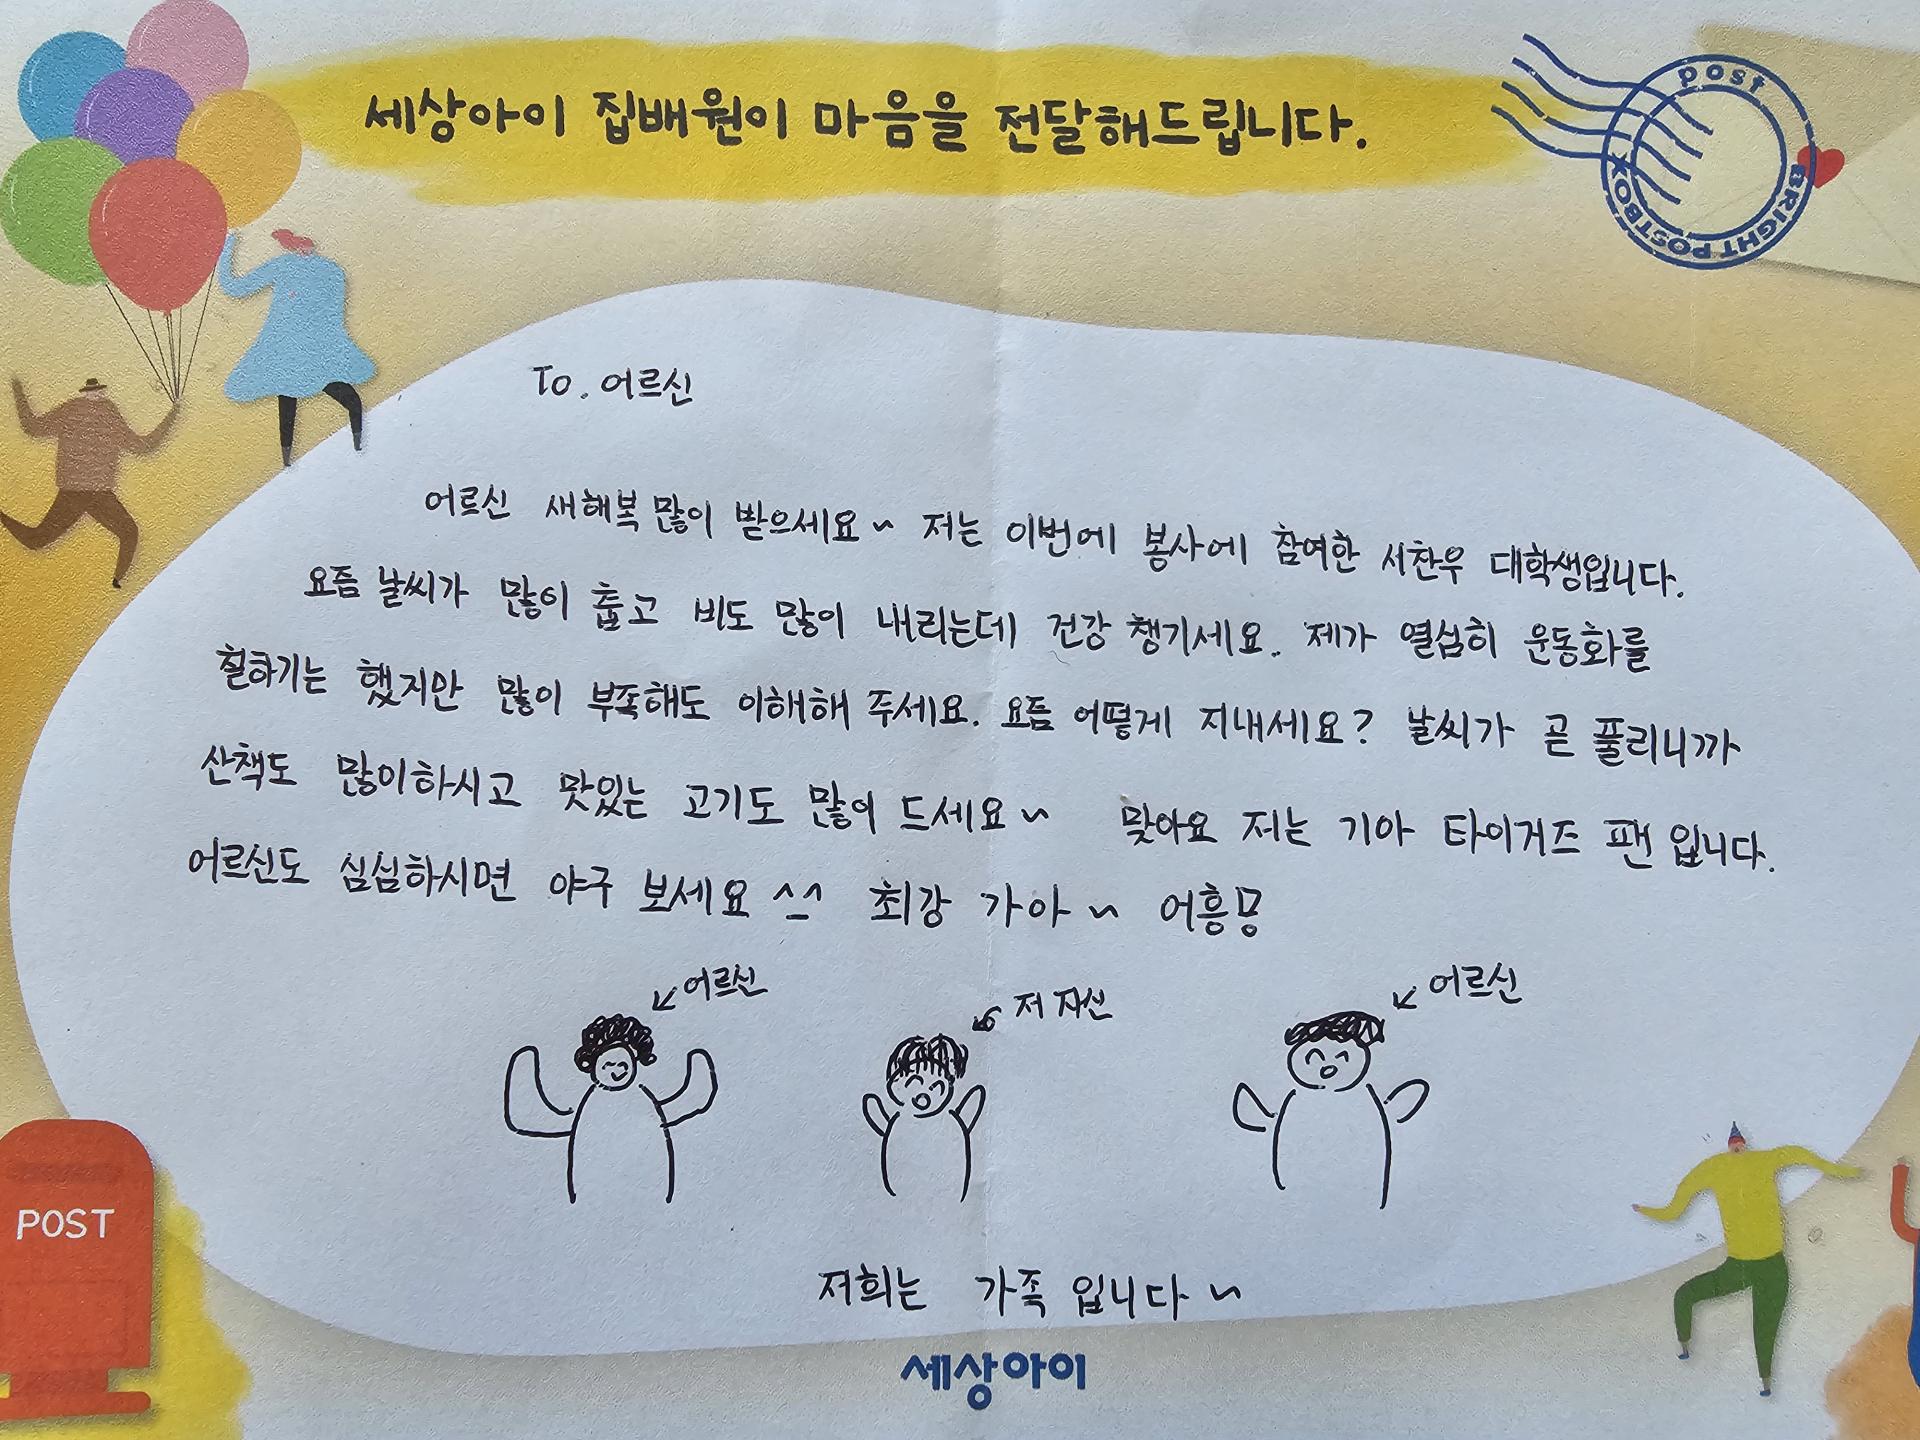 세상아이 집배원이 마음을 전달해드립니다.
post
BRIGHT POSTBOX
To. 어르신
어르신 새해복 많이 받으세요~ 저는 이번에 봉사에 참여한 서찬우 대학생입니다.
요즘 날씨가 많이 춥고 비도 많이 내리는데 건강 챙기세요. 제가 열심히 운동화를
칠하기는 했지만 많이 부족해도 이해해 주세요. 요즘 어떻게 지내세요? 날씨가 곧 풀리니까
산책도 많이하시고 맛있는 고기도 많이 드세요~ 맞아요 저는 기아 타이거즈 팬 입니다.
어르신도 심심하시면 야구 보세요 ^_^ 최강 기아~ 어흥
어르신
저 자신
어르신
POST
저희는 가족 입니다~
세상아이